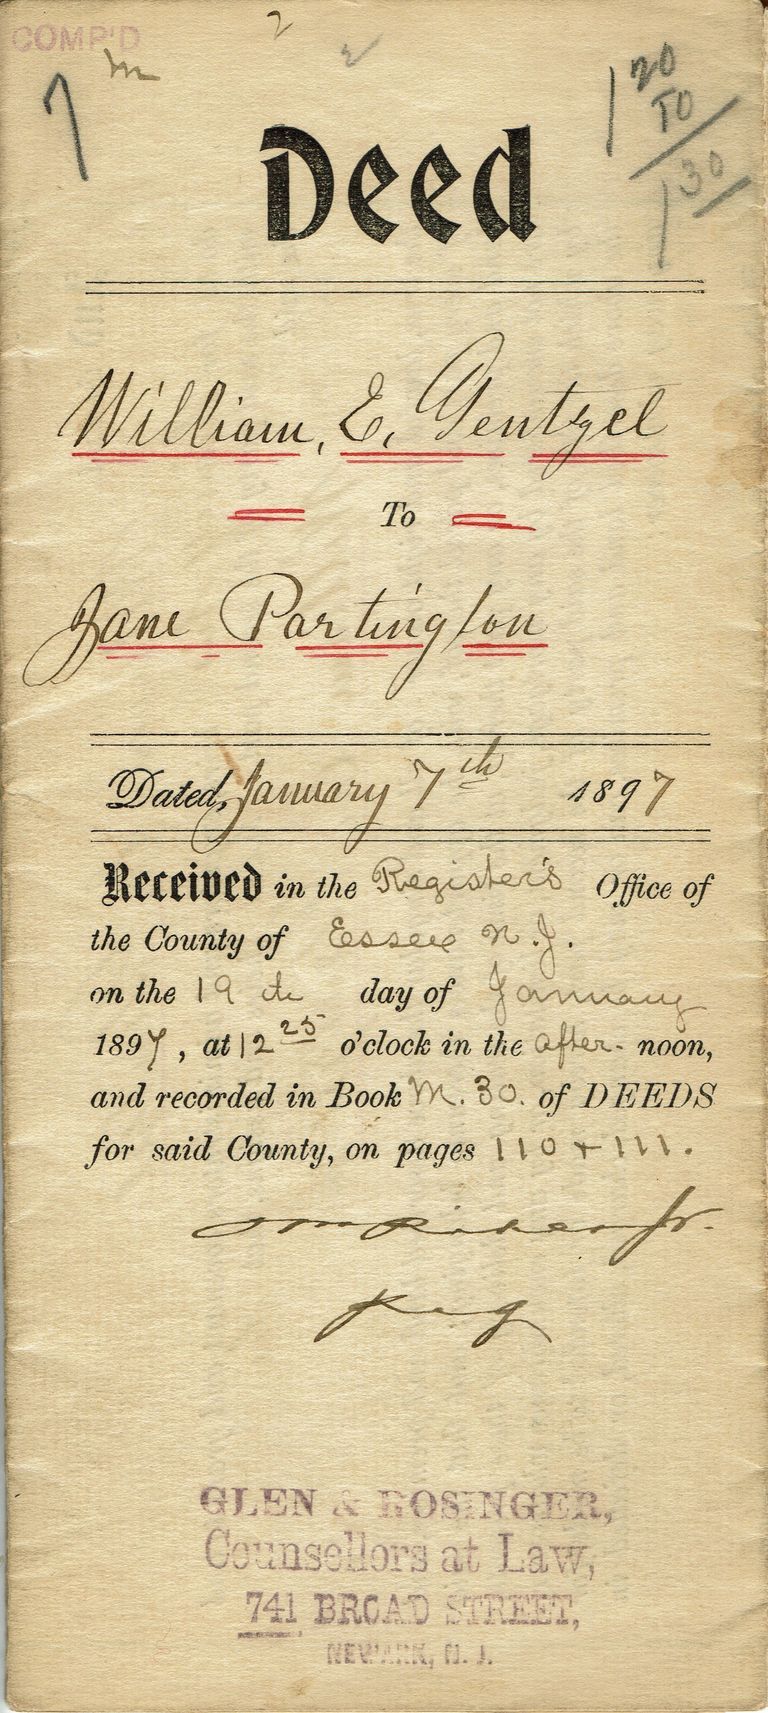 COMP'D
2
2
7
m
1 20
10
1 30
Deed
William, E, Gentzel
To
Jane Partington
Dated, January 7th 1897
Received in the Register's Office of
the County of Essex N.J.
on the 19th day of January
1897, at 12 25 o'clock in the after- noon,
and recorded in Book M. 30. of DEEDS
for said County, on pages 110 + 111.
Jr.
Reg
GLEN & ROSINGER,
Counsellors at Law,
741 BROAD STREET,
NEWARK, N. J.